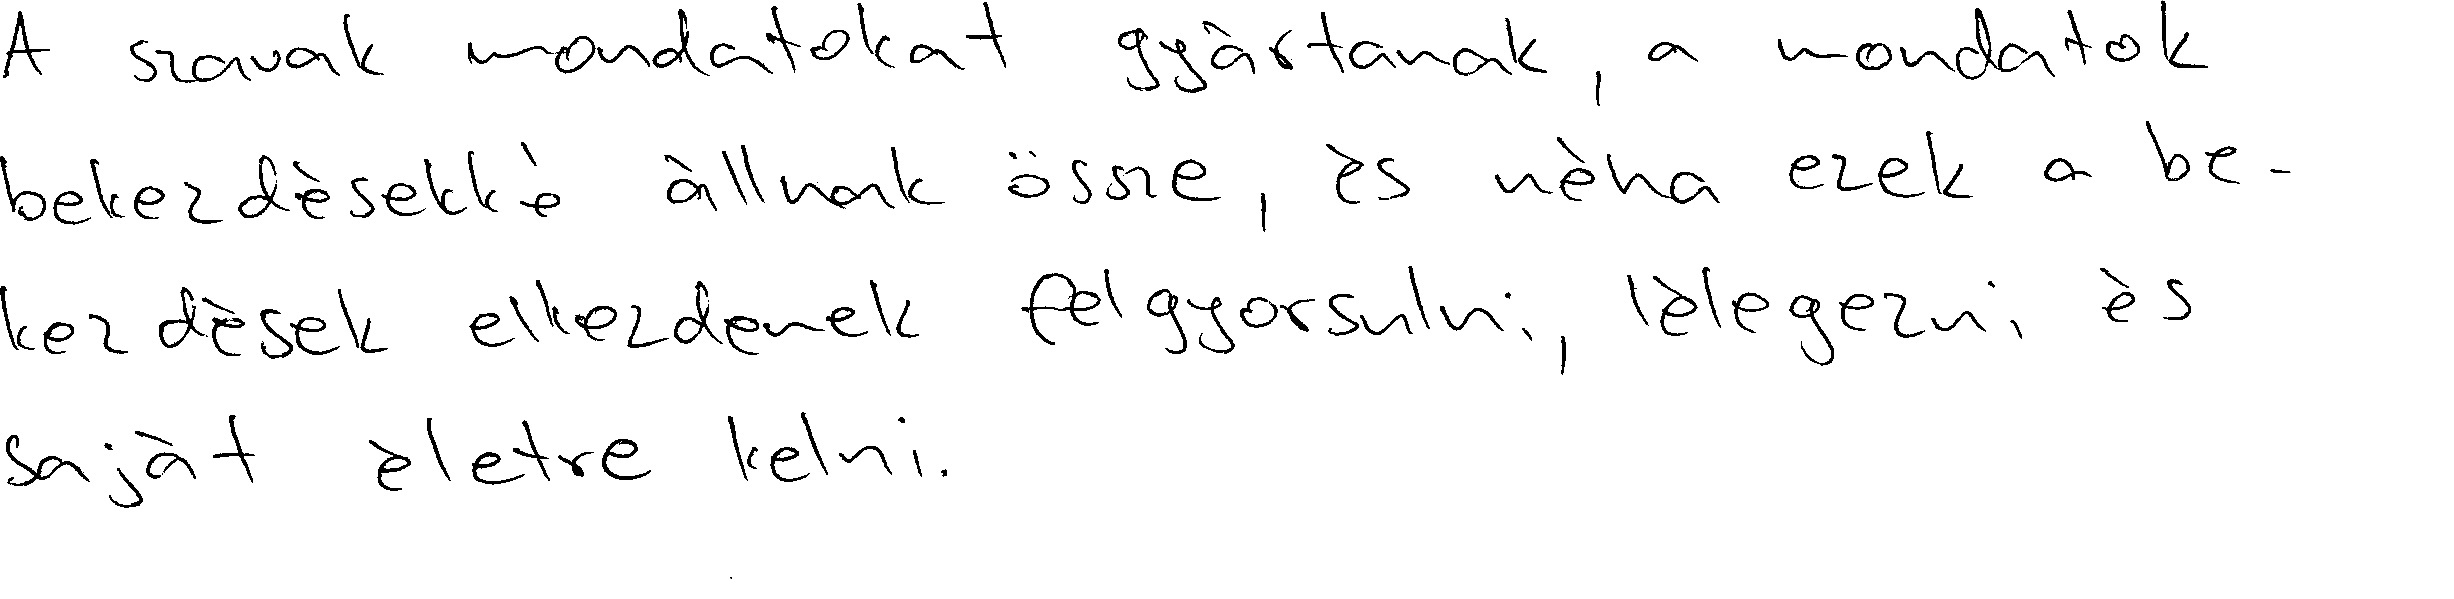 A szavak mondatokat gyártanak, a mondatok
bekezdésekké állnak össze, és néha ezek a be-
kezdések elkezdenek felgyorsulni, lélegezni és
saját életre kelni.